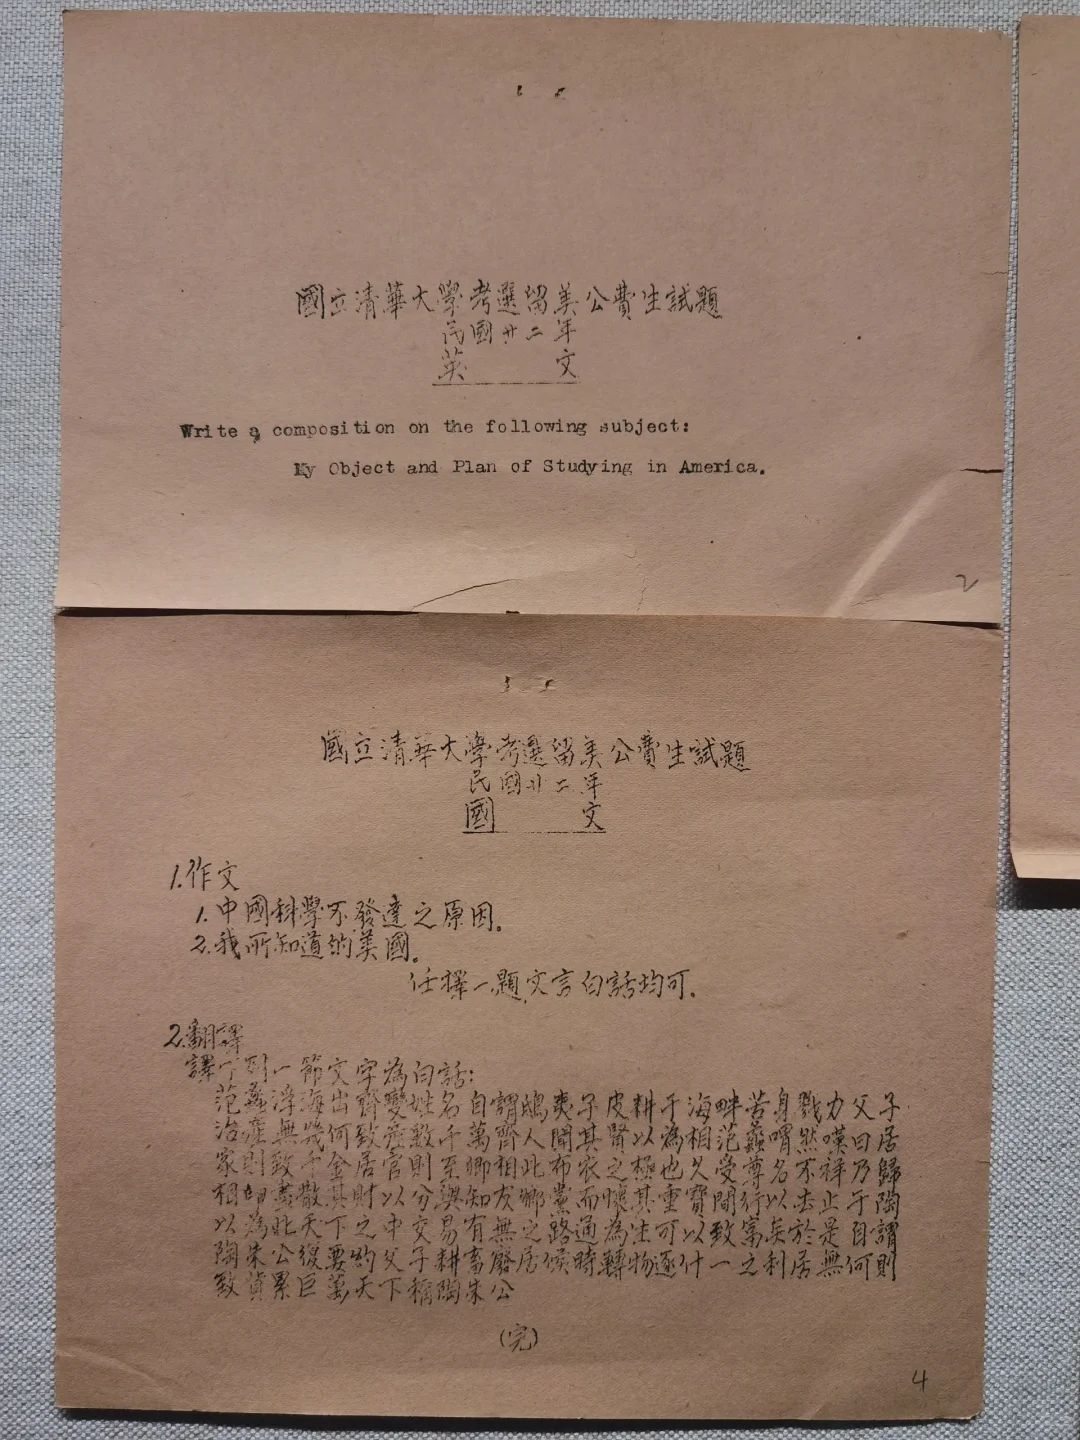 國立清華大學考選留美公費生試題
民國廿二年
英 文
Write a composition on the following subject:
My Object and Plan of Studying in America.
2
國立清華大學考選留美公費生試題
民國廿二年
國 文
1.作文
1.中國科學不發達之原因。
2.我所知道的美國。
任擇一題文言白話均可.
2.翻譯
譯下列一節文字為白話:
范蠡浮海出齊變姓名自謂鴟夷子皮耕于海畔苦身戮力父子
治產無幾何致產數千萬齊人聞其賢以為相范蠡喟然嘆曰居
家則致千金居官則至卿相此布衣之極也久受尊名不祥乃歸
相印盡散其財以分與知友鄉黨而懷其重寶間行以去止于陶
以為此天下之中交易有無之路通為生可以致富矣於是自謂
陶朱公復要約父子耕畜廢居候時轉物逐什一之利居無何則
致貲累巨萬天下稱陶朱公
(完)
4